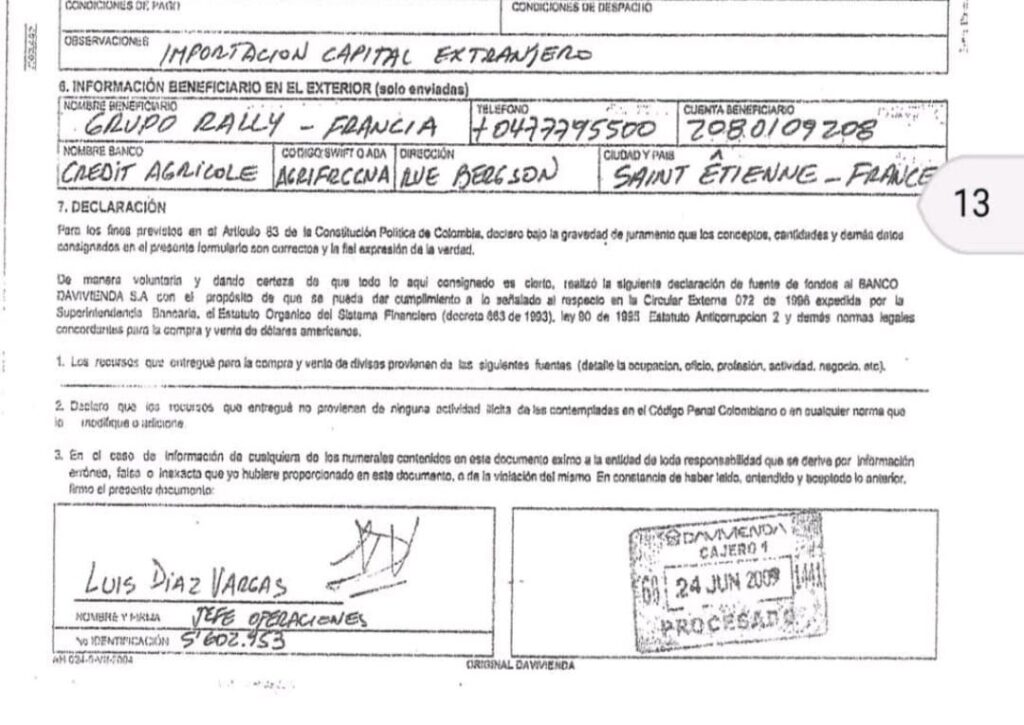 CONDICIONES DE PAGO
CONDICIONES DE DESPACHO
OBSERVACIONES
IMPORTACION CAPITAL EXTRANJERO
6. INFORMACIÓN BENEFICIARIO EN EL EXTERIOR (solo enviadas)
NOMBRE BENEFICIARIO TELEFONO CUENTA BENEFICIARIO
GRUPO RALLY - FRANCIA +0477795500 2080109208
NOMBRE BANCO CODIGO SWIFT O ABA DIRECCIÓN CIUDAD Y PAIS
CREDIT AGRICOLE AGRIFRCCNA RUE BERGSON SAINT ÊTIENNE - FRANCE
13
7. DECLARACIÓN
Para los fines previstos en el Artículo 83 de la Constitución Política de Colombia, declaro bajo la gravedad de juramento que los conceptos, cantidades y demás datos
consignados en el presente formulario son correctos y la fiel expresión de la verdad.
De manera voluntaria y dando certeza de que todo lo aqui consignado es cierto, realizó la siguiente declaración de fuente de fondos al BANCO
DAVIVIENDA S.A con el propósito de que se pueda dar cumplimiento a lo señalado al respecto en la Circular Externa 072 de 1996 expedida por la
Superintendencia Bancaria, el Estatuto Organico del Sistema Financiero (decreto 663 de 1993), ley 90 de 1995 Estatuto Anticorrupcion 2 y demás normas legales
concordantes para la compra y venta de dólares americanos.
1. Los recursos que entregué para la compra y venta de divisas provienen de las siguientes fuentes (detalle la ocupacion, oficio, profesión, actividad, negocio, etc).
2. Declaro que los recursos que entregué no provienen de ninguna actividad ilícita de las contempladas en el Código Penal Colombiano o en cualquier norma que
lo modifique o adicione
3. En el caso de información de cualquiera de los numerales contenidos en este documento eximo a la entidad de toda responsabilidad que se derive por información
errónea, falsa o inexacta que yo hubiere proporcionado en este documento, o de la violación del mismo En constancia de haber leido, entendido y aceptado lo anterior,
firmo el presente documento:
DAVIVIENDA
CAJERO 1
60 24 JUN 2009 1441
PROCESADO
LUIS DIAZ VARGAS
NOMBRE Y FIRMA JEFE OPERACIONES
No IDENTIFICACIÓN 5'602.953
ORIGINAL DAVIVIENDA